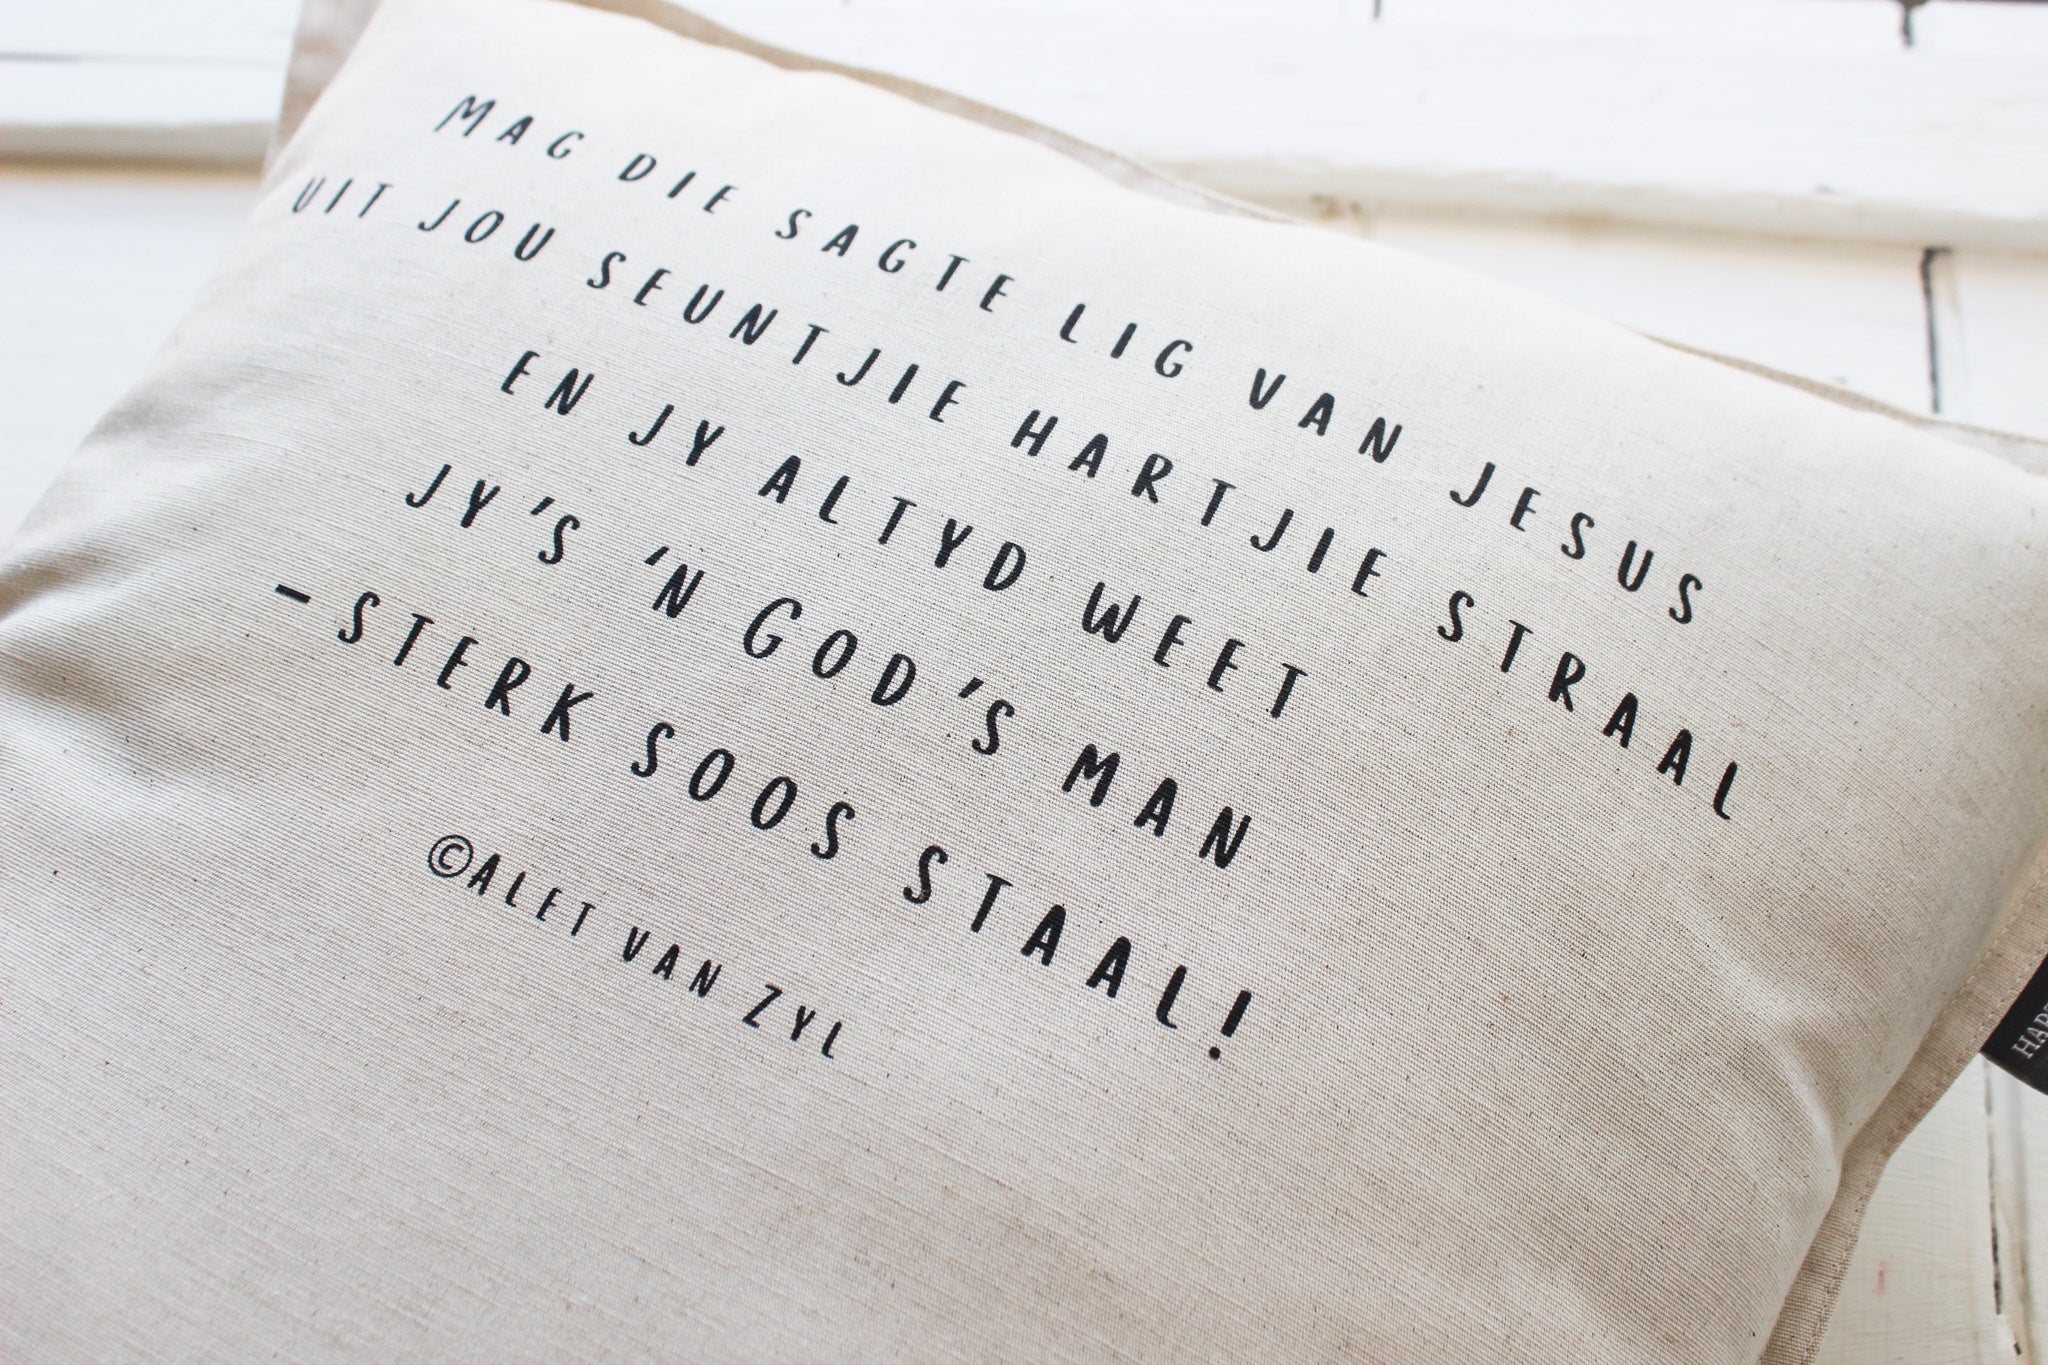 MAG DIE SAGTE LIG VAN JESUS
UIT JOU SEUNTJIE HARTJIE STRAAL
EN JY ALTYD WEET
JY'S 'N GOD'S MAN
-STERK SOOS STAAL!
©ALET VAN ZYL